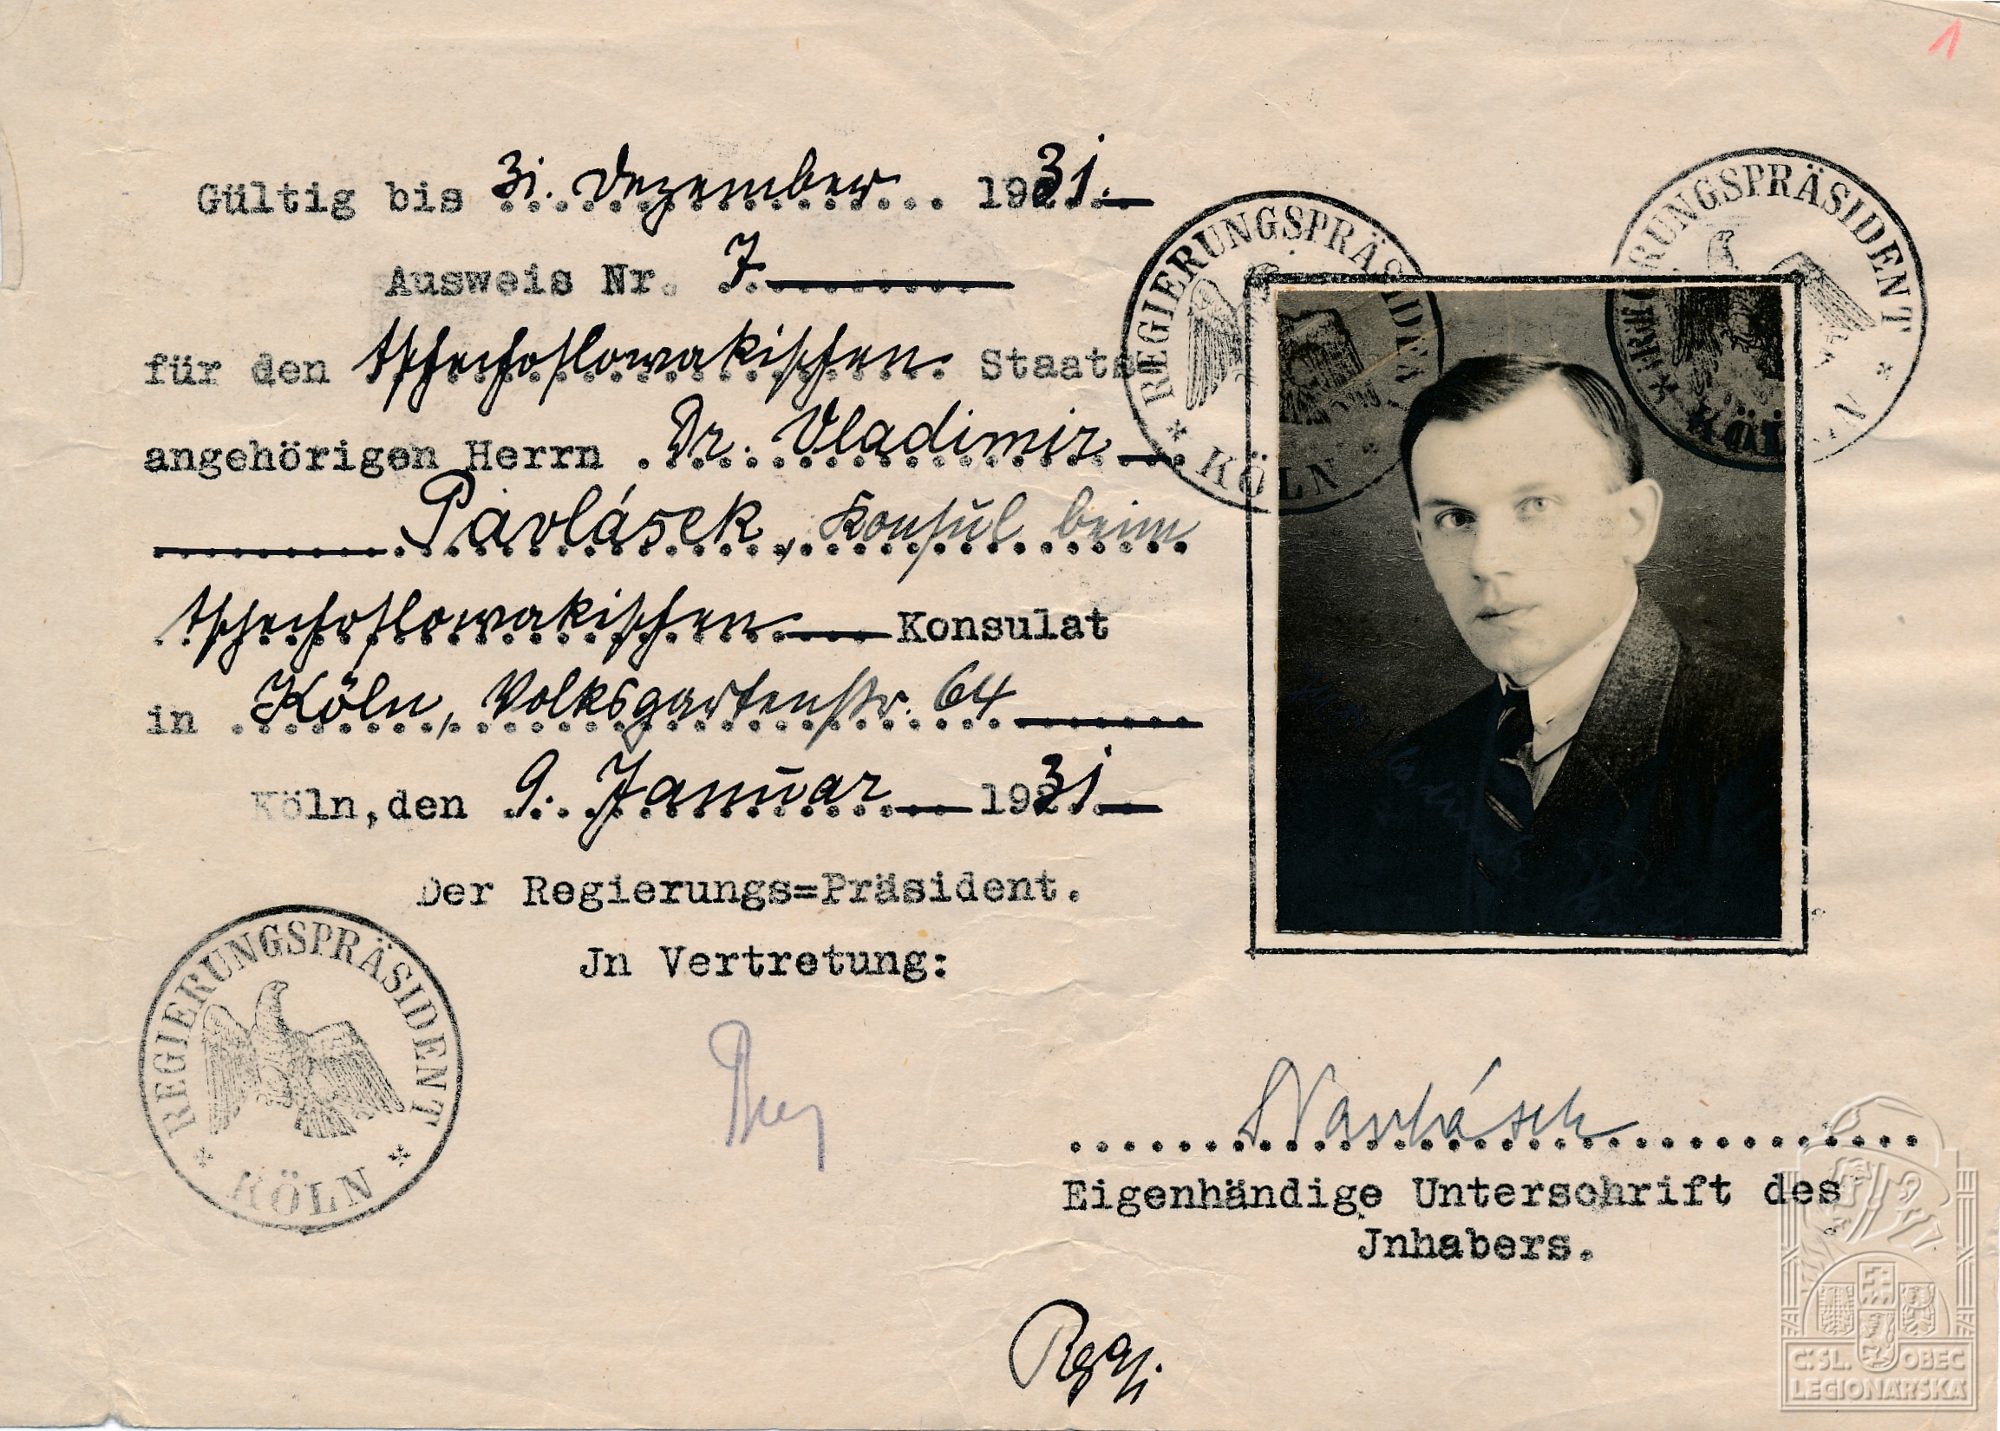 1
Gültig bis 31. Dezember 1931.
Ausweis Nr. 7.
für den tschechoslowakischen Staats
angehörigen Herrn Dr. Vladimir
Pavlásek, Konsul beim
tschechoslowakischen Konsulat
in Köln, Volksgartenstr. 64
Köln, den 9. Januar 1931
Der Regierungs=Präsident.
Jn Vertretung:
REGIERUNGSPRÄSIDENT
* KÖLN *
REGIERUNGSPRÄSIDENT
* KÖLN *
REGIERUNGSPRÄSIDENT
* KÖLN *
Pavlásek
Eigenhändige Unterschrift des
Jnhabers.
Č.SL. OBEC
LEGIONÁŘSKÁ